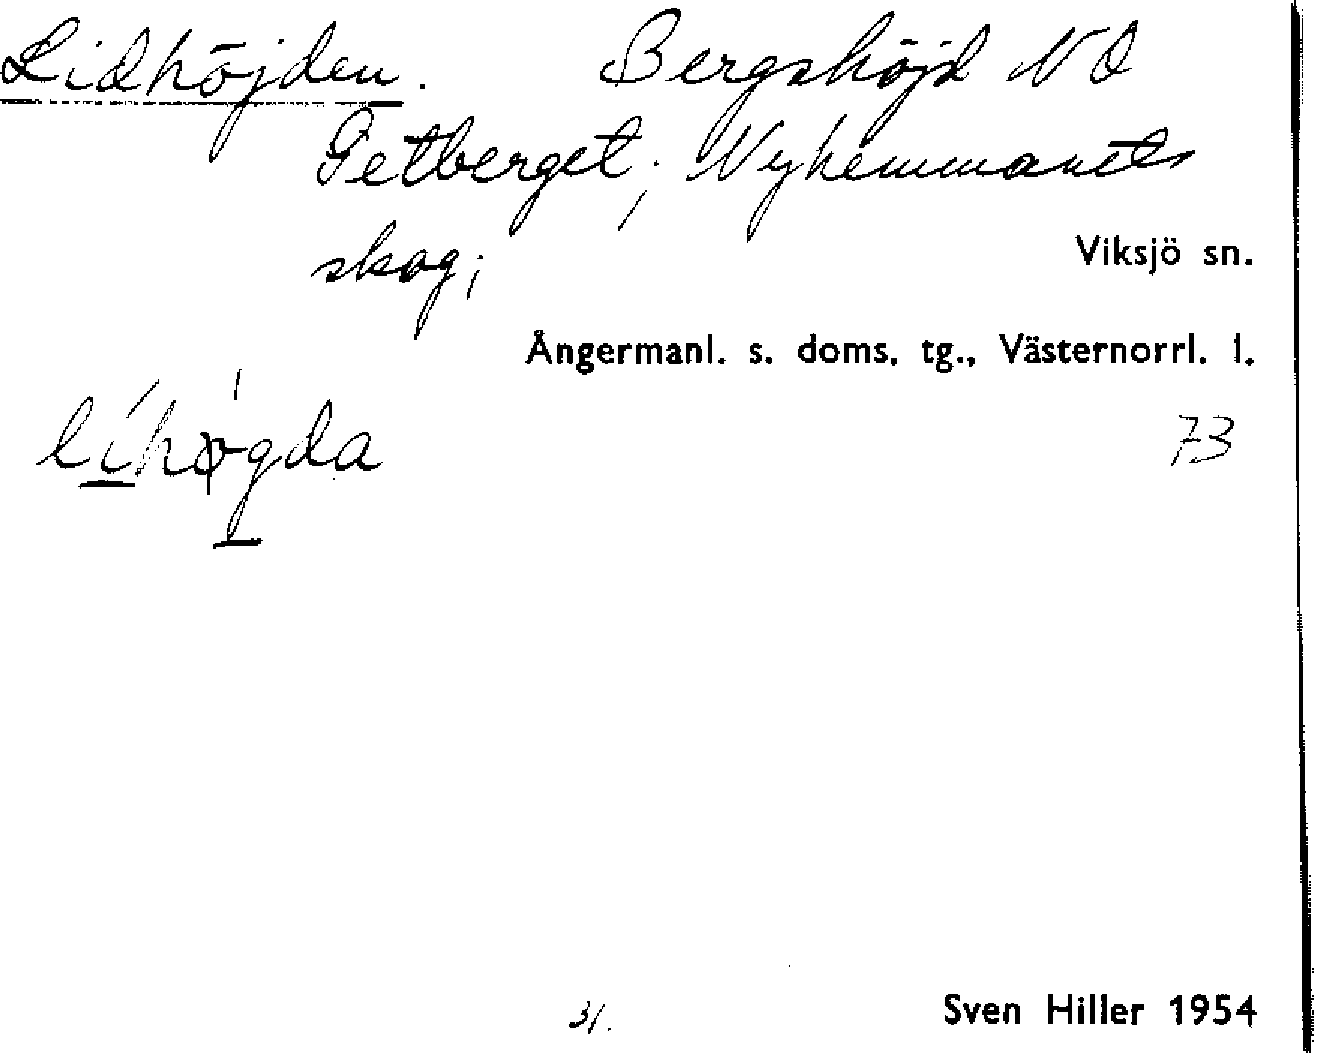 Lidhöjden. Bergshöjd NO
Getberget; Nyhemmanets
skog;
Viksjö sn.
Ångermanl. s. doms. tg., Västernorrl. l.
líhøgda
73
31.
Sven Hiller 1954